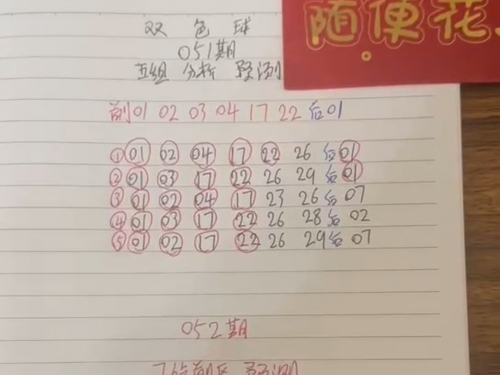 随便花
双色球
051期
五组 分析 预测
前01 02 03 04 17 22 后01
①01 02 04 17 22 26 后01
②01 03 17 22 26 29 后01
③01 02 04 17 23 26 后07
④01 03 17 22 26 28 后02
⑤01 02 17 22 26 29 后07
052期